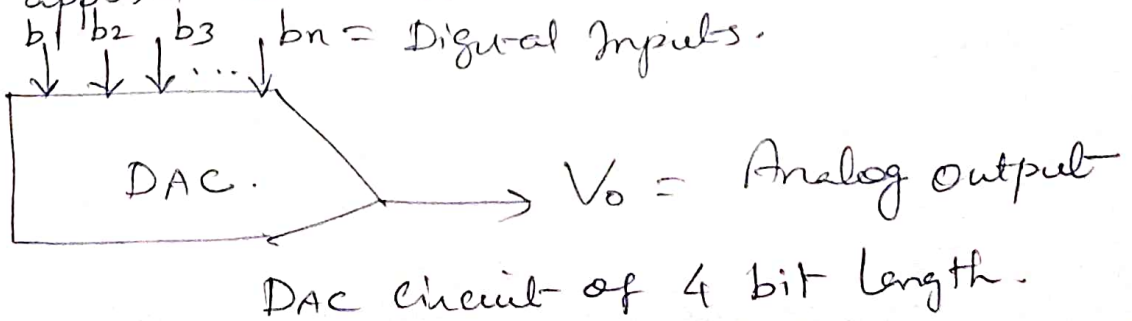 b1 b2 b3 ... bn = Digital Inputs.
DAC.
Vo = Analog output
DAC Circuit of 4 bit Length.